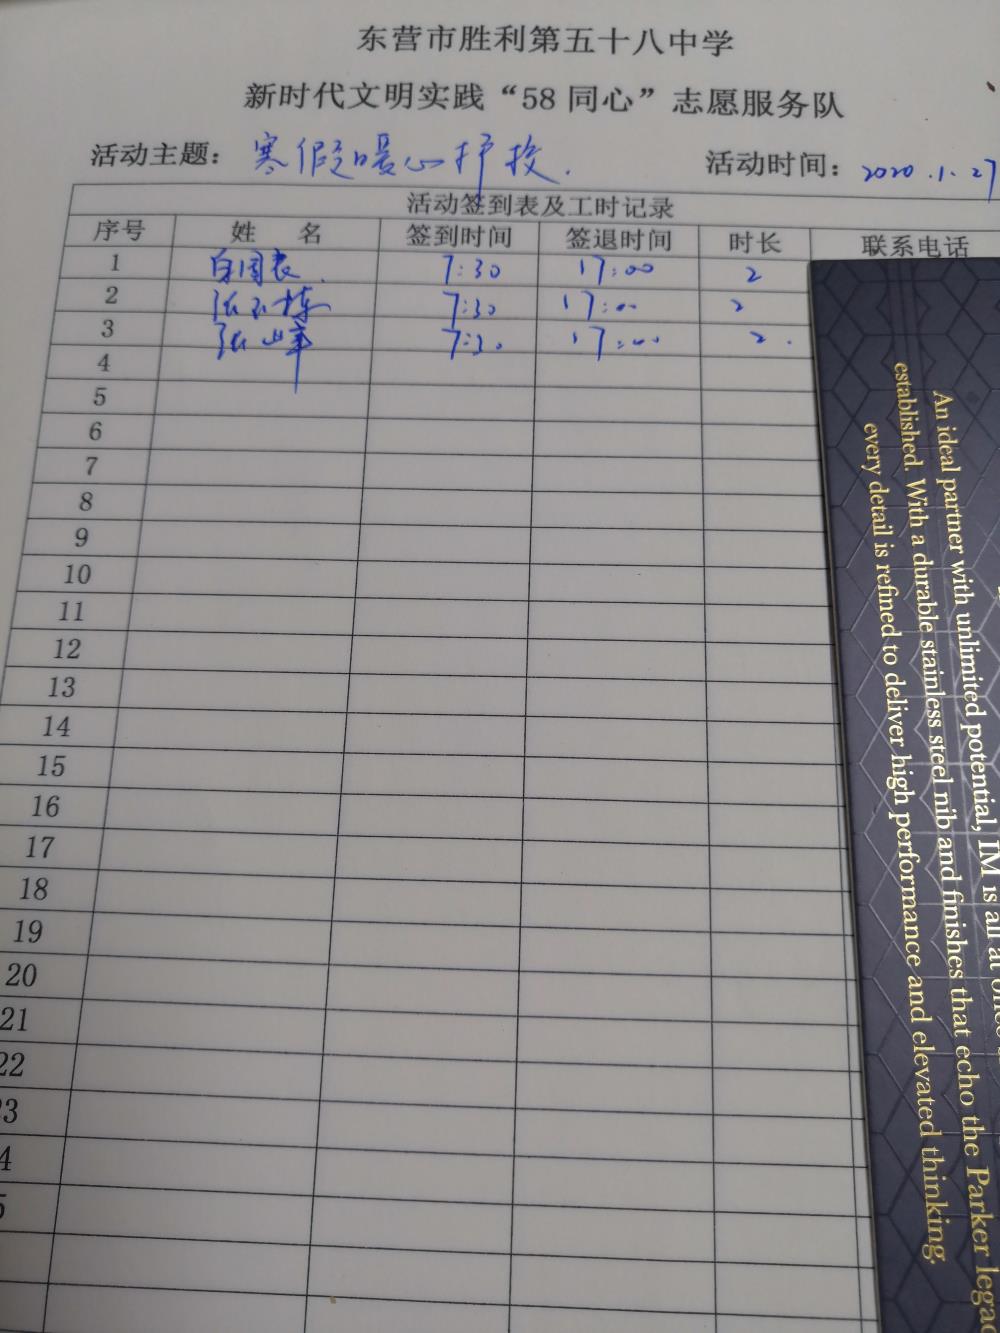 东营市胜利第五十八中学
新时代文明实践“58 同心”志愿服务队
活动主题： 寒假暖心护校. 活动时间： 2020.1.27
活动签到表及工时记录
序号 姓 名 签到时间 签退时间 时长 联系电话
1 白国表 7:30 17:00 2
2 张玉栋 7:30 17:00 2
3 张峰 7:30 17:00 2.
4
5
6
7
8
9
10
11
12
13
14
15
16
17
18
19
20
21
22
23
4
5
An ideal partner with unlimited potential, IM is all at once
established. With a durable stainless steel nib and finishes that echo the Parker legac
every detail is refined to deliver high performance and elevated thinking.